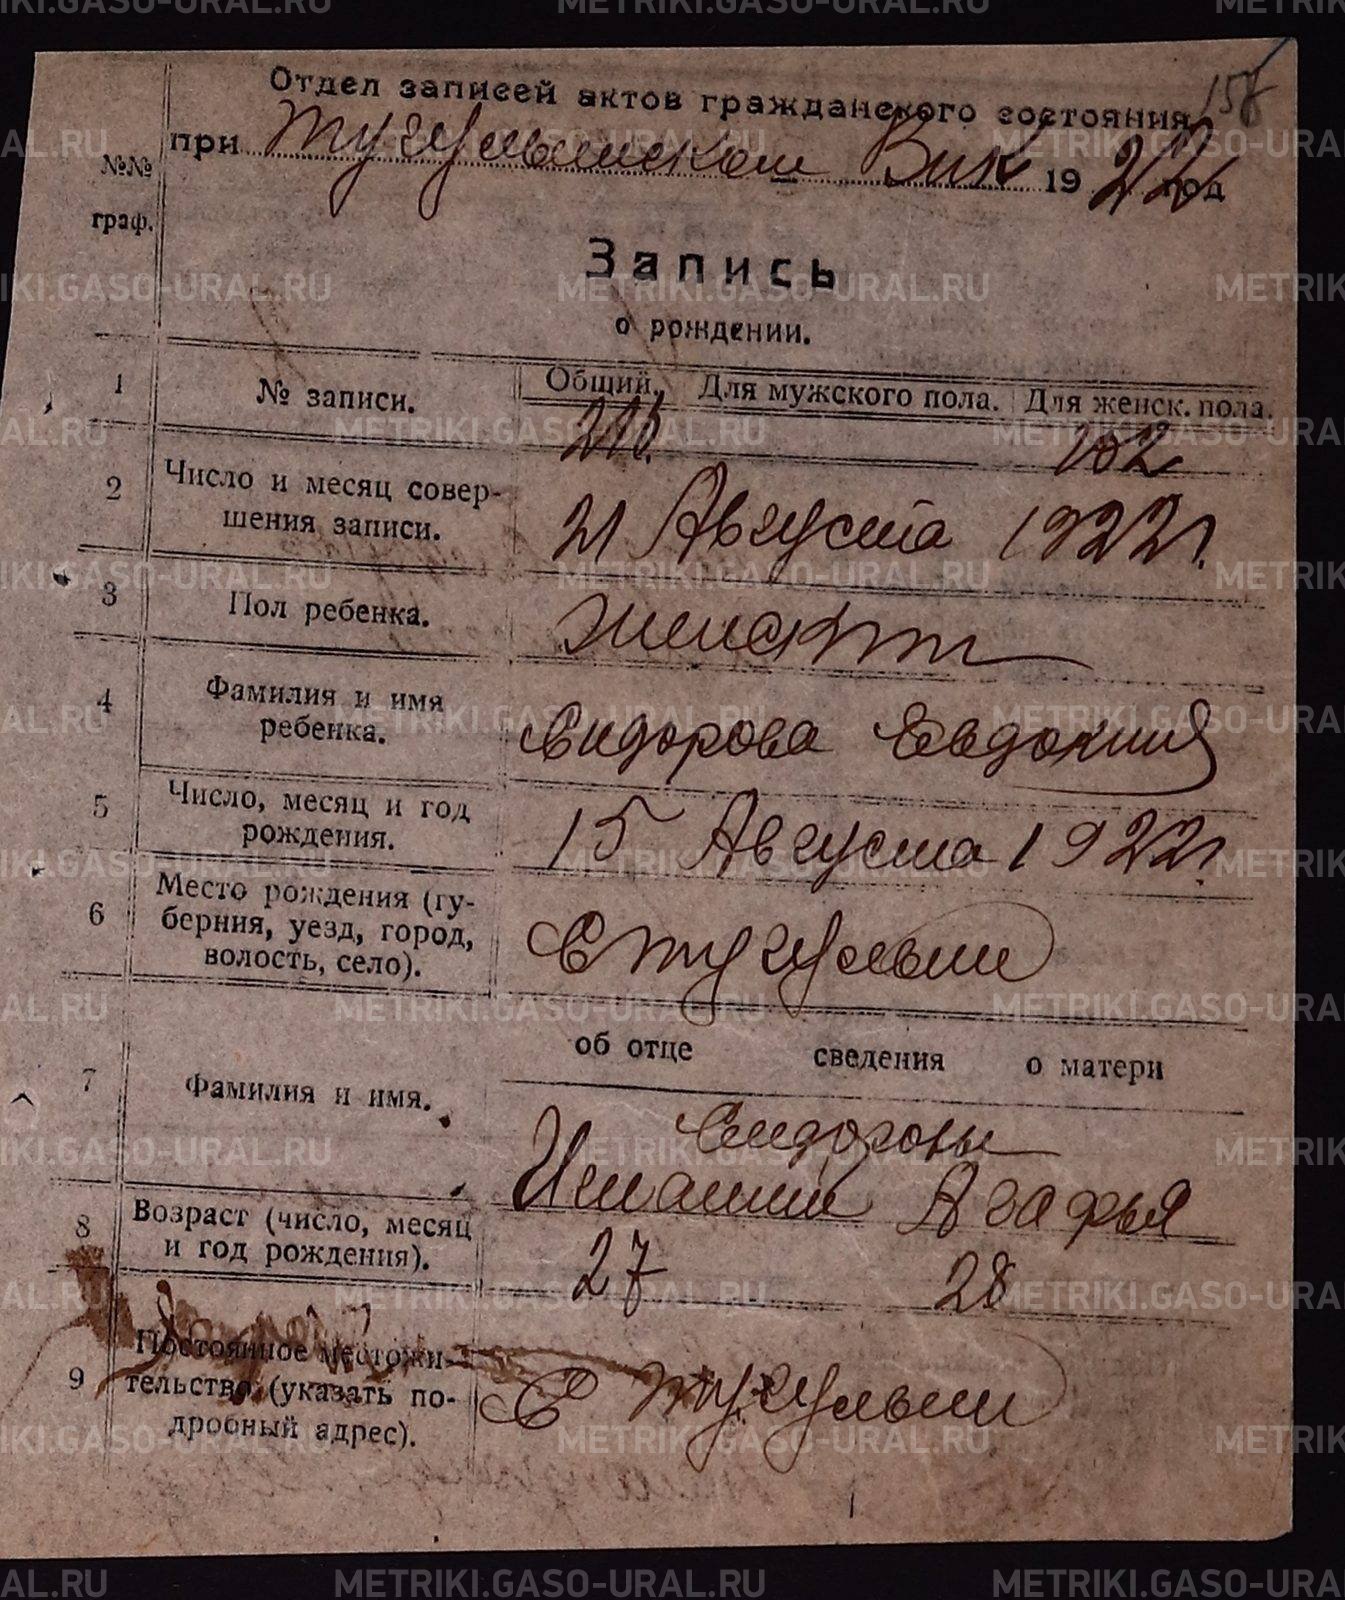 Отдел записей актов гражданского состояния 157
при Тугулымском Вик 1922 год
№№
граф.
Запись
о рождении.
1 № записи. Общий. Для мужского пола. Для женск. пола.
102
2 Число и месяц совер-
шения записи.
21 Августа 1922 г.
3 Пол ребенка. женский
4 Фамилия и имя
ребенка.
Сидорова Евдокия
5 Число, месяц и год
рождения.
15 Августа 1922 г.
6 Место рождения (гу-
берния, уезд, город,
волость, село).
С Тугулым
об отце сведения о матери
7 Фамилия и имя.
Сидоровы
Игнатий Агафья
8 Возраст (число, месяц
и год рождения).
27 28
9 Постоянное местожи-
тельство (указать по-
дробный адрес).
С Тугулым
METRIKI.GASO-URAL.RU